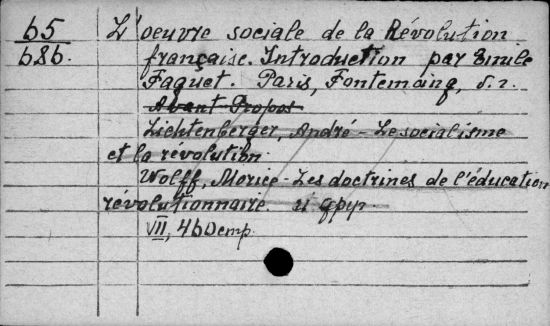 65 L'oeuvre sociale de la Révolution
686. française. Introduction par Emile
Faguet. Paris, Fontemoing, s.d.
Avant Propos
Lichtenberger, André - Le socialisme
et la révolution.
Wolff, Morice - Les doctrines de l'éducation
révolutionnaire. и друг.
VII, 460 стр.